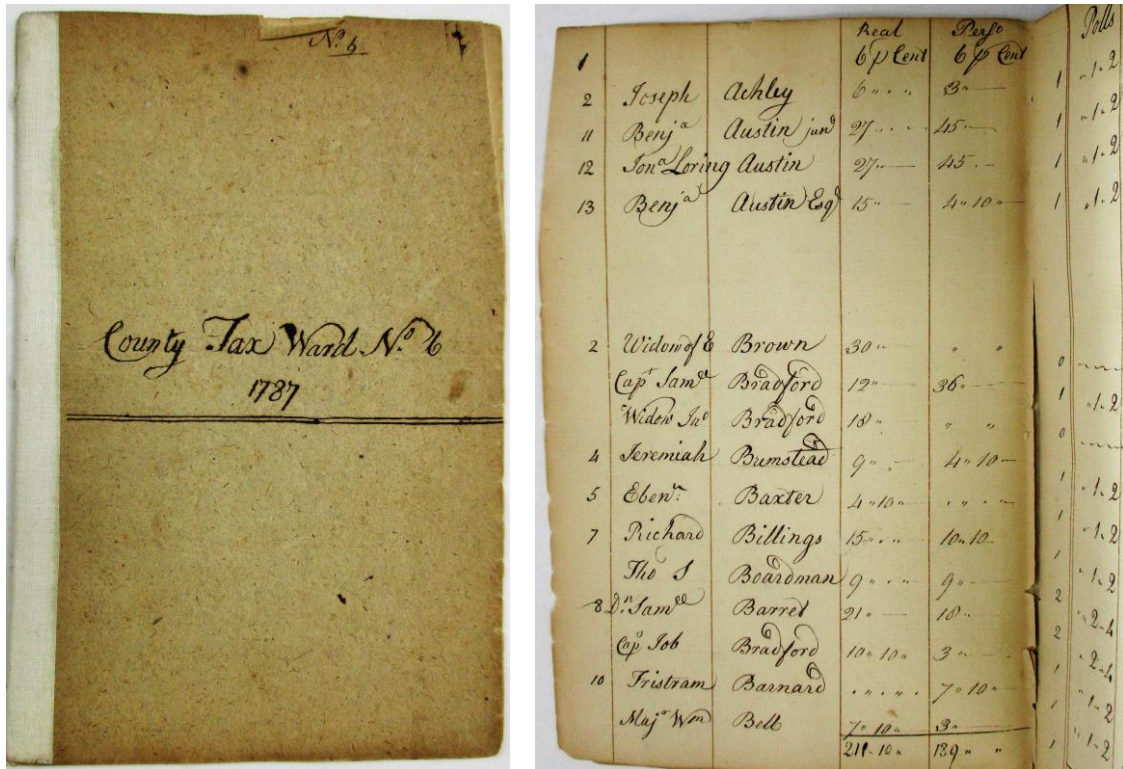 No. 6
County Tax Ward No. 6
1787
Real Perso Polls
1 6 p Cent 6 p Cent
2 Joseph Ashley 6 " " " 3 " 1 " 1 " 2
11 Benja Austin junr 27 " " " 45 " 1 " 1 " 2
12 Jona Loring Austin 27 " 45 " 1 " 1 " 2
13 Benja Austin Esqr 15 " 4 " 10 " 1 " 1 " 2
2 Widow of E Brown 30 " " " 0
Capt Samll Bradford 12 " 36 " 1 " 1 " 2
Widow Jno Bradford 18 " " " 0
4 Jeremiah Bumstead 9 " " 4 " 10 1 " 1 " 2
5 Ebenr Baxter 4 " 10 " " " " " 1
7 Richard Billings 15 " " " 10 " 10 1 " 1 " 2
Tho S Boardman 9 " " " 9 " 2 " 1 " 2
8 Dn Samll Barret 21 " 18 " 2 " 2 " 4
Cap Job Bradford 10 " 10 " 3 " 1 " 2 " 4
10 Tristram Barnard " " " " 7 " 10 1 " 1 " 2
Majr Wm Bell 7 " 10 " 3 " 1 " 1 " 2
211 " 10 " 189 " "